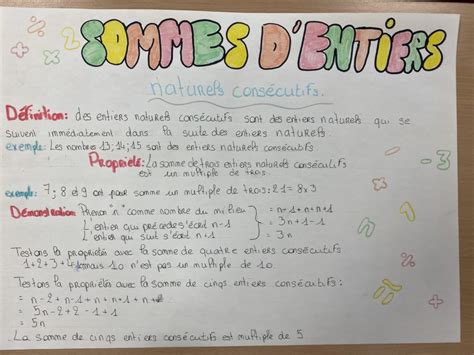 SOMMES D'ENTIERS
naturels consécutifs.
Définition: des entiers naturels consécutifs sont des entiers naturels qui se
suivent immédiatement dans la suite des entiers naturels.
exemple: Les nombres 13; 14; 15 sont des entiers naturels consécutifs
Propriété: La somme de trois entiers naturels consécutifs
est un multiple de trois.
exemple: 7; 8 et 9 ont pour somme un multiple de trois: 21 = 8x3
Démonstration: Prenon "n" comme nombre du milieu
L'entier qui précède s'écrit n-1
L'entier qui suit s'écrit n+1
= n-1+n+n+1
= 3n+1-1
= 3n
Testons la propriétés avec la somme de quatre entiers consécutifs
1+2+3+4 10 n'est pas un multiple de 10.
Testons la propriétés avec la somme de cinqs entiers consécutifs:
= n-2+n-1+n+n+1+n+
= 5n-2+2-1+1
= 5n
La somme de cinqs entiers consécutifs est multiple de 5